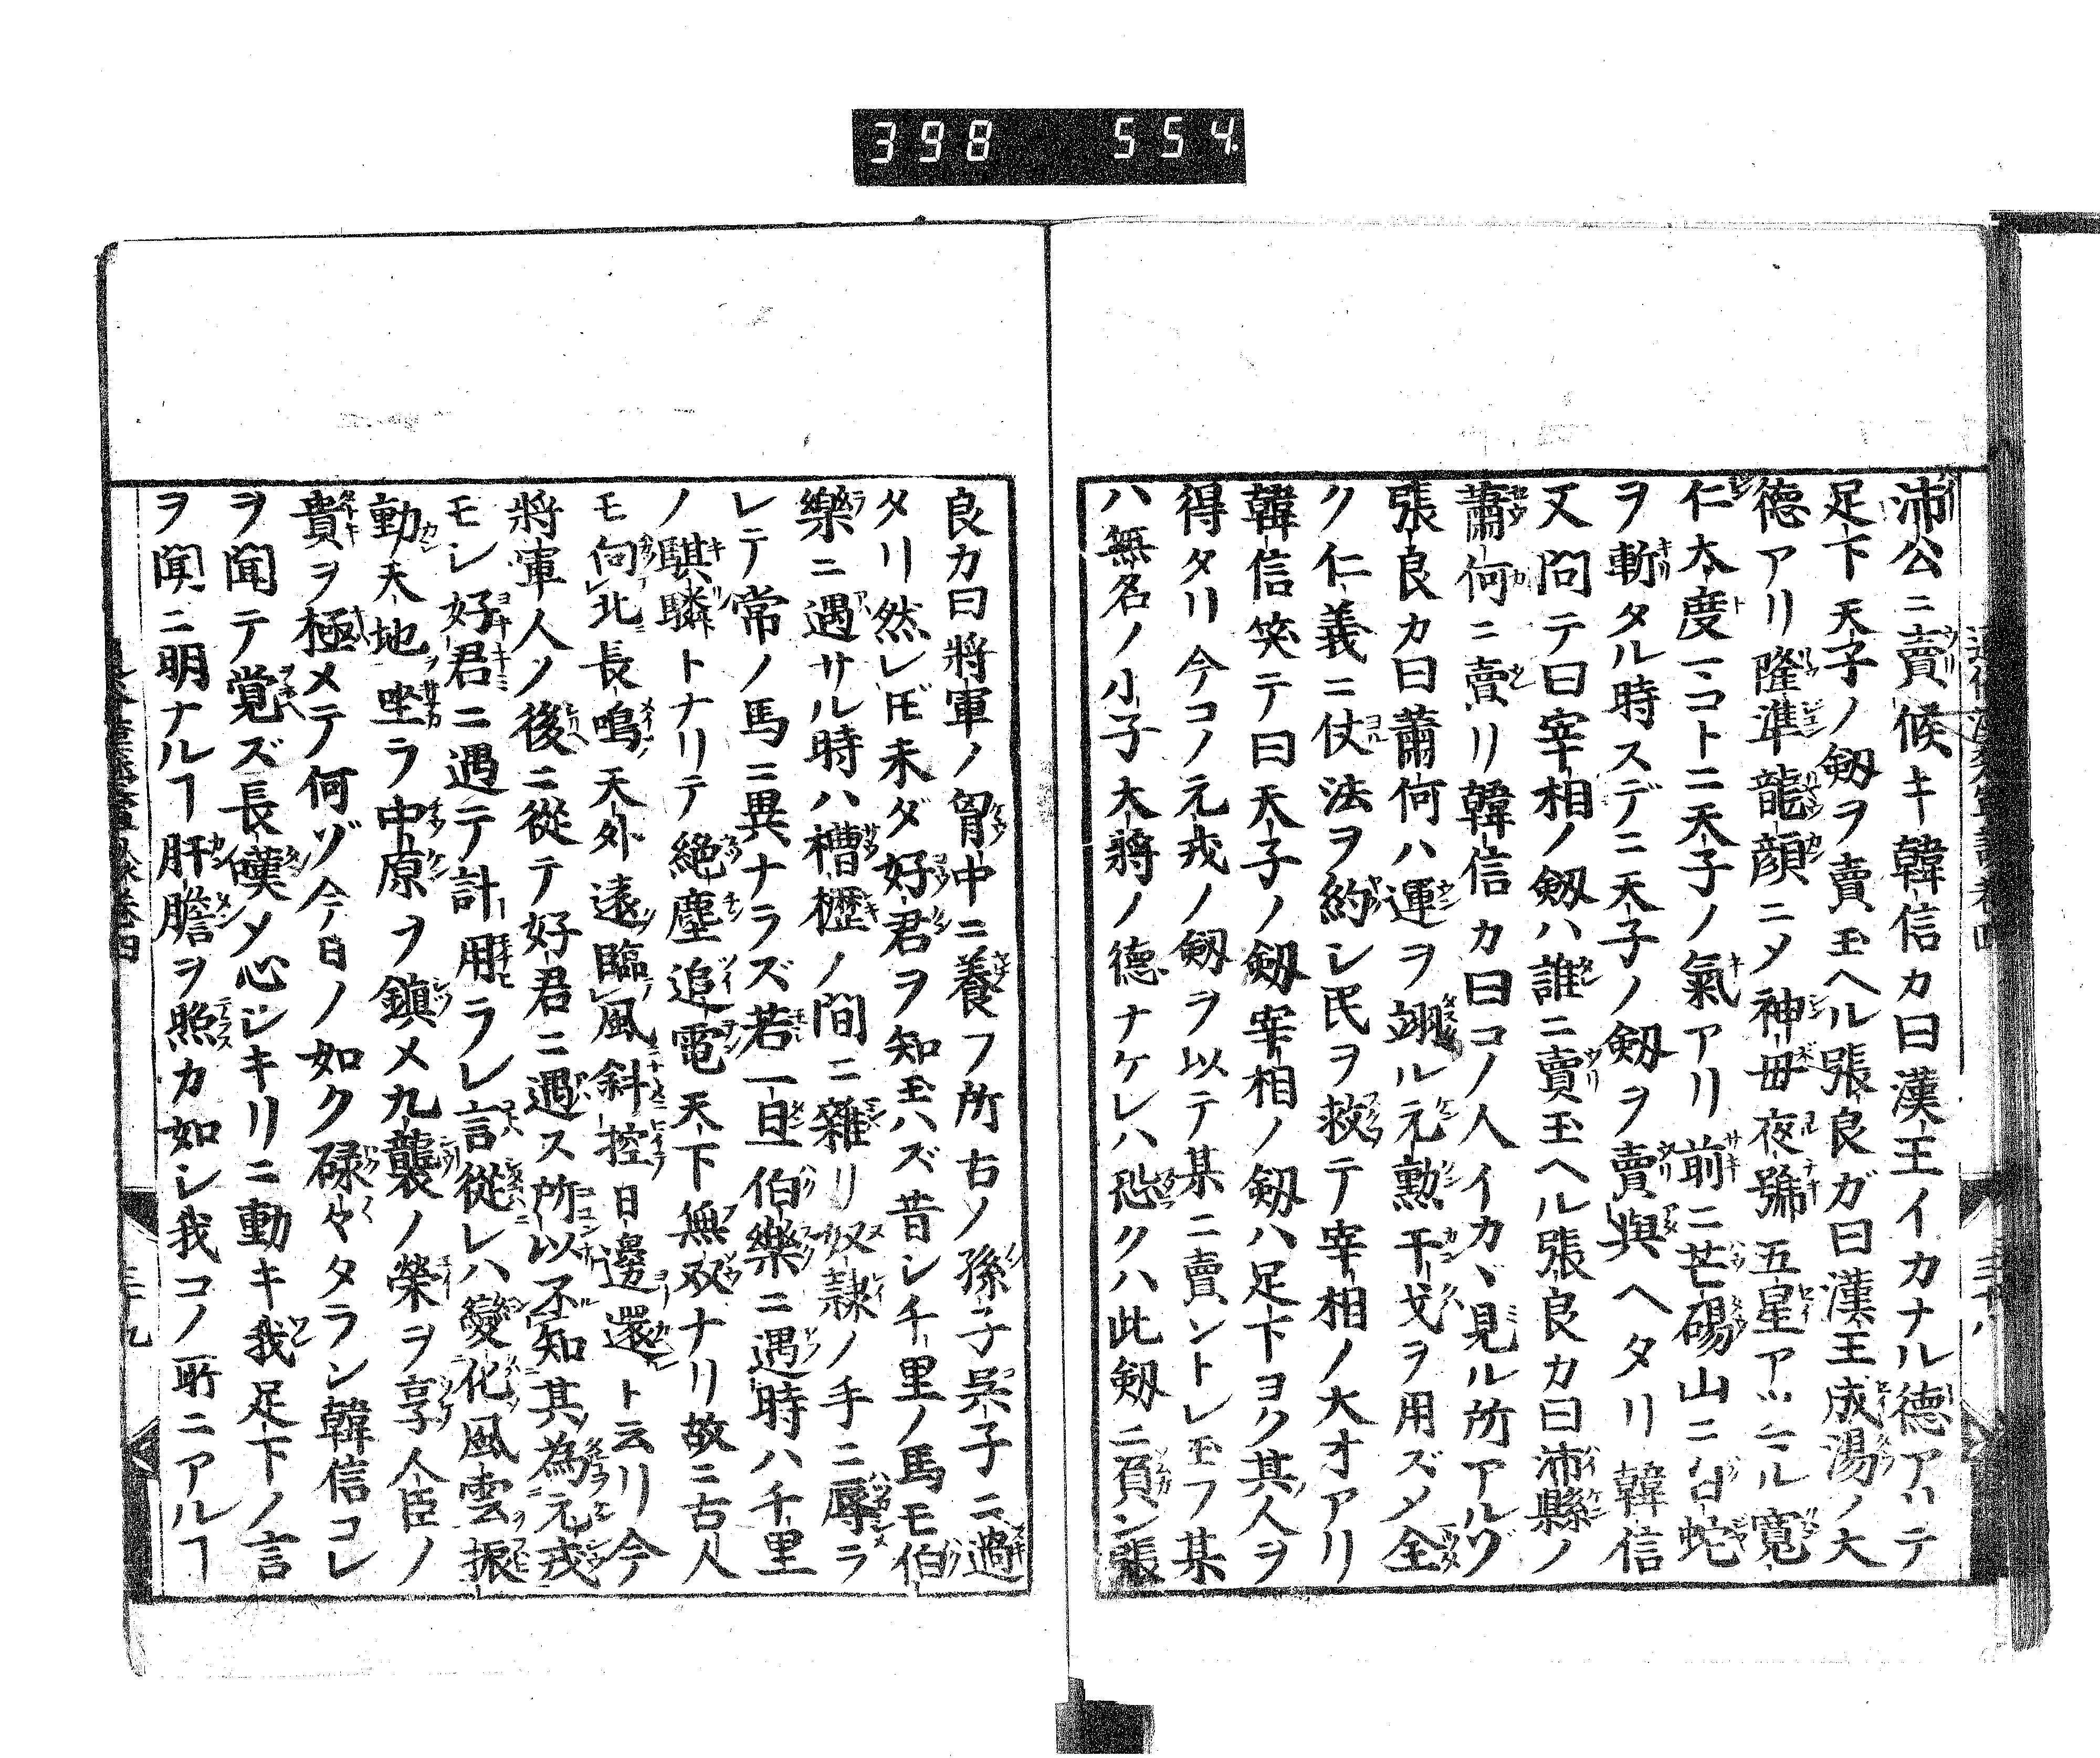 398 554
沛公ニ賣候キ韓信カ曰漢王イカナル德アリテ
足下天子ノ劔ヲ賣玉ヘル張良ガ曰漢王成湯ノ大
德アリ隆準龍顔ニメ神母夜號五星アツマル寛
仁大度マコトニ天子ノ氣アリ前ニ芒碭山ニ白蛇
ヲ斬タル時スデニ天子ノ劔ヲ賣與ヘタリ韓信
又問テ曰宰相ノ劔ハ誰ニ賣玉ヘル張良カ曰沛縣ノ
蕭何ニ賣リ韓信カ曰コノ人イカヾ見ル所アルゾ
張良カ曰蕭何ハ運ヲ翊ル元勲干戈ヲ用ズメ全
ク仁義ニ仗法ヲ約シ民ヲ救テ宰相ノ大才アリ
韓信笑テ曰天子ノ劔宰相ノ劔ハ足下ヨク其人ヲ
得タリ今コノ元戎ノ劔ヲ以テ某ニ賣ントレ玉フ某
ハ無名ノ小子大將ノ德ナケレハ恐クハ此劔ニ負ン張
良カ曰將軍ノ胷中ニ養フ所古ノ孫子呉子ニ過
タリ然レ𪜈未ダ好君ヲ知玉ハズ昔シ千里ノ馬モ伯
樂ニ遇サル時ハ槽櫪ノ間ニ雜リ奴隷ノ手ニ辱ラ
レテ常ノ馬ニ異ナラズ若一旦伯樂ニ遇時ハ千里
ノ騏驎トナリテ絶塵追電天下無双ナリ故ニ古人
モ向北長鳴天外遠臨風斜控日邊還ト云リ今
將軍人ノ後ニ從テ好君ニ遇ス所以丕知其為元戎
モシ好君ニ遇テ計用ラレ言從レハ變化風雲振
動天地坐ラ中原ヲ鎮メ九襲ノ榮ヲ享人臣ノ
貴ヲ極メテ何ゾ今日ノ如ク碌々タラン韓信コレ
ヲ聞テ覚ズ長嘆メ心シキリニ動キ我足下ノ言
ヲ聞ニ明ナルヿ肝膽ヲ照カ如シ我コノ所ニアルヿ